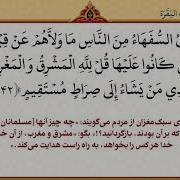 ـقَرَة
ـنَ السُّفَهَاءُ مِنَ النَّاسِ مَا وَلَّاهُمْ عَنْ قِبْـ
ـي كَانُوا عَلَيْهَا قُل لِلَّهِ الْمَشْرِقُ وَالْمَغْرِ
ـدِي مَنْ يَشَاءُ إِلَى صِرَاطٍ مُسْتَقِيمٍ ﴿۱۴۲
ـی سبک‌مغزان از مردم می‌گویند: «چه چیز آنها [مسلمانان
که بر آن بودند، بازگردانید؟!» بگو: «مشرق و مغرب، از آن خد
خدا هر کس را بخواهد، به راه راست هدایت می‌کند.»